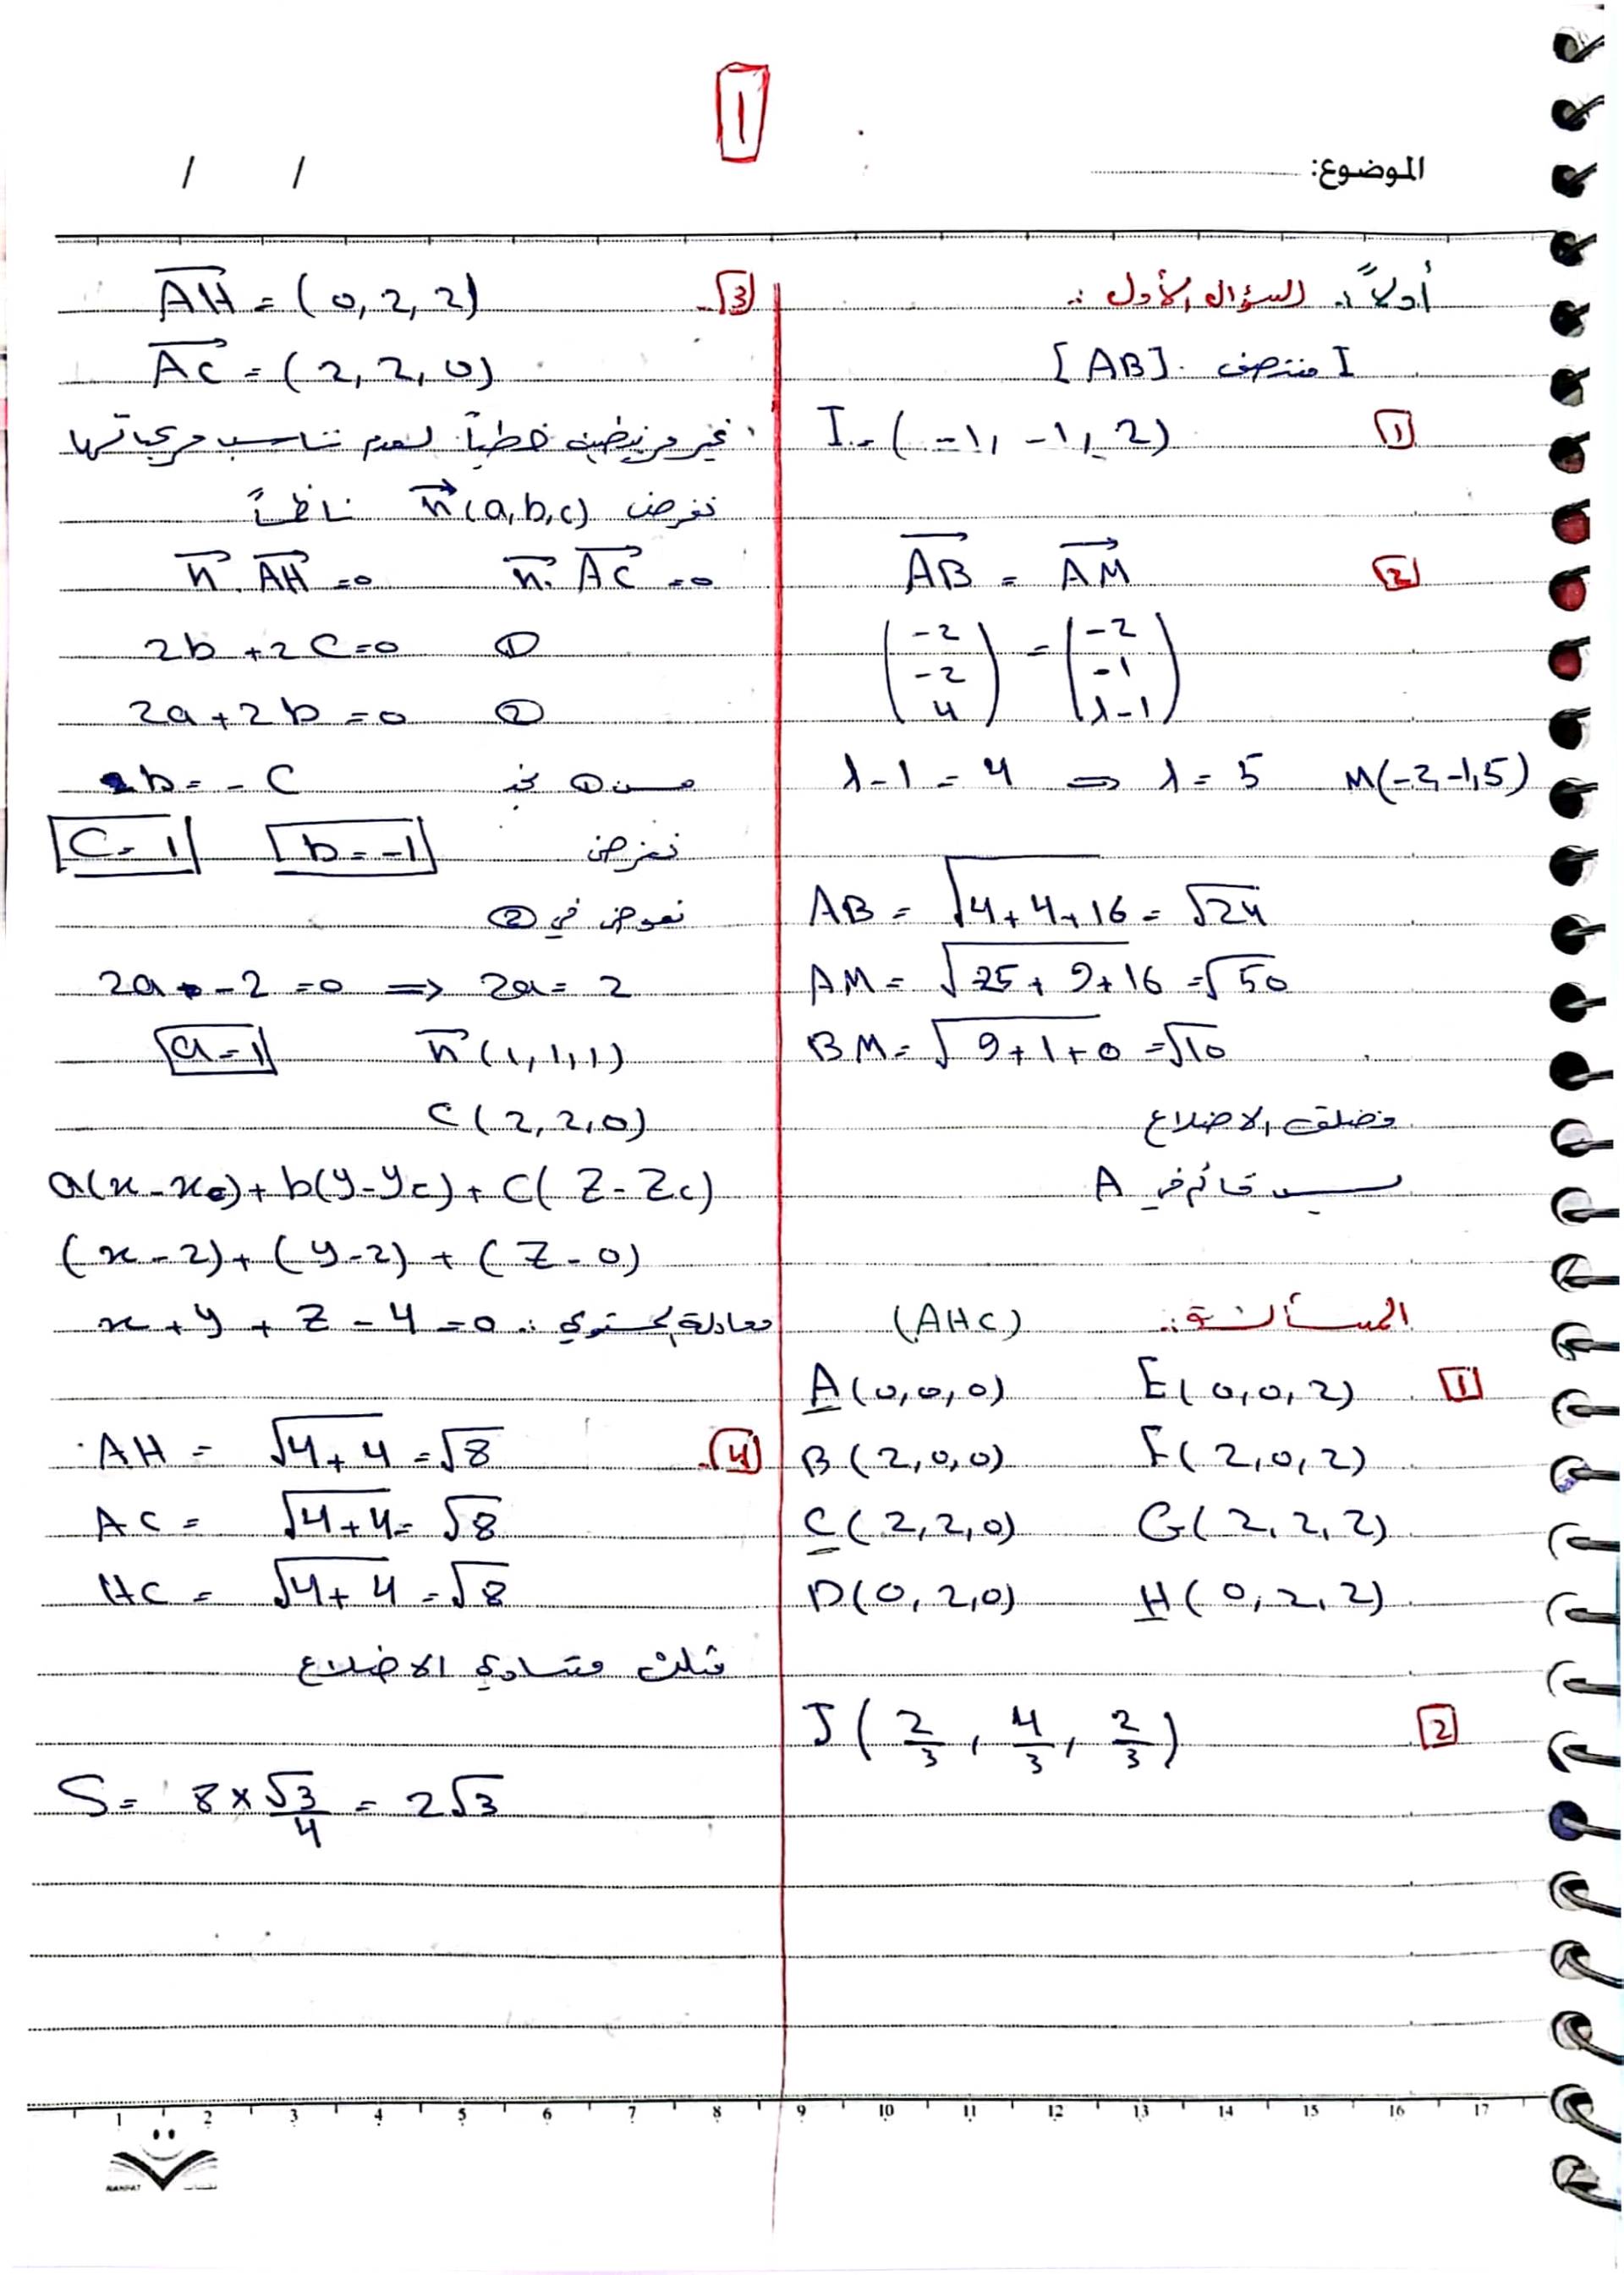 1
الموضوع:
/ /
أولاً: السؤال الأول:
I منتصف [AB]
1 I = (-1, -1, 2)
2 AB = AM
(-2 -2 4) = (-2 -1 λ-1)
λ-1 = 4 ⇒ λ = 5 M(-2,-1,5)
AB = √4+4+16 = √24
AM = √25+9+16 = √50
BM = √9+1+0 = √10
مختلف الاضلاع
ليس قائم في A
المسألة: (AHC)
1 A(0,0,0) E(0,0,2)
B(2,0,0) F(2,0,2)
C(2,2,0) G(2,2,2)
D(0,2,0) H(0,2,2)
2 J(2/3, 4/3, 2/3)
3 AH = (0,2,2)
AC = (2,2,0)
غير مرتبطين خطياً لعدم تناسب مركباتها
نفرض n(a,b,c) ناظماً
n.AH=0 n.AC=0
2b+2C=0 ①
2a+2b=0 ②
من ① نجد b=-C
نفرض b=-1 C=1
نعوض في ②
2a-2=0 ⇒ 2a=2
a=1 n(1,1,1)
C(2,2,0)
a(x-xc)+b(y-yc)+C(Z-Zc)
(x-2)+(y-2)+(Z-0)
معادلة المستوي: x+y+z-4=0
4 AH = √4+4 = √8
AC = √4+4 = √8
HC = √4+4 = √8
مثلث متساوي الاضلاع
S = 8×√3/4 = 2√3
1 2 3 4 5 6 7 8 9 10 11 12 13 14 15 16 17